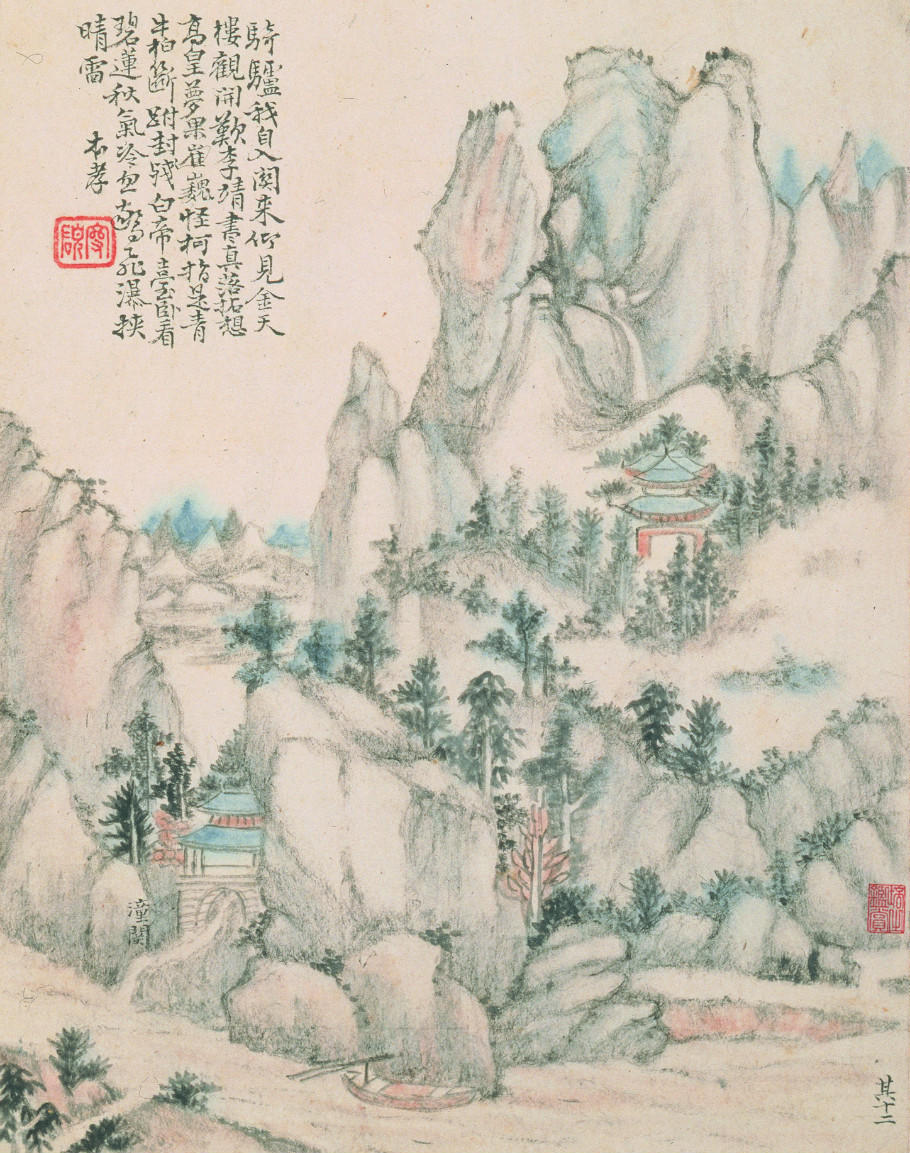 騎驢我自入関来仰見金天
樓觀開歎李靖書真落拓想
高皇夢果崔巍怪柯指是青
牛柏斷跗封殘白帝臺卧看
碧蓮秋氣冷忽驚飛瀑挾
晴雷 本孝
潼關
其十二